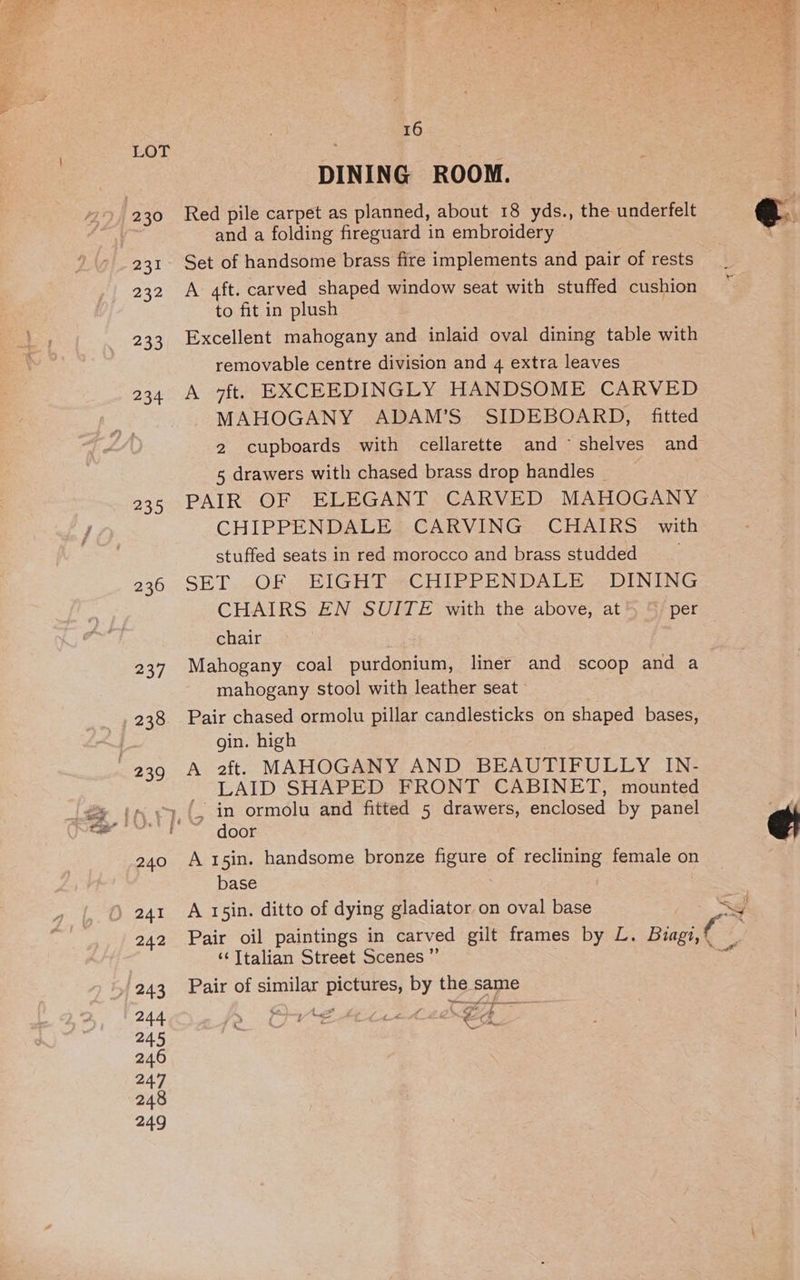 16
LOT
DINING ROOM.
230 Red pile carpet as planned, about 18 yds., the underfelt
and a folding fireguard in embroidery
231 Set of handsome brass fire implements and pair of rests
232 A 4ft. carved shaped window seat with stuffed cushion
to fit in plush
233 Excellent mahogany and inlaid oval dining table with
removable centre division and 4 extra leaves
234 A 7ft. EXCEEDINGLY HANDSOME CARVED
MAHOGANY ADAM'S SIDEBOARD, fitted
2 cupboards with cellarette and shelves and
5 drawers with chased brass drop handles
235 PAIR OF ELEGANT CARVED MAHOGANY
CHIPPENDALE CARVING CHAIRS with
stuffed seats in red morocco and brass studded
236 SET OF EIGHT CHIPPENDALE DINING
CHAIRS EN SUITE with the above, at per
chair
237 Mahogany coal purdonium, liner and scoop and a
mahogany stool with leather seat
238 Pair chased ormolu pillar candlesticks on shaped bases,
9in. high
239 A 2ft. MAHOGANY AND BEAUTIFULLY IN-
LAID SHAPED FRONT CABINET, mounted
in ormolu and fitted 5 drawers, enclosed by panel
door
240 A 15in. handsome bronze figure of reclining female on
base
241 A 15in. ditto of dying gladiator on oval base
242 Pair oil paintings in carved gilt frames by L. Biagi,
“Italian Street Scenes”
243 Pair of similar pictures, by the same
244
245
246
247
248
249